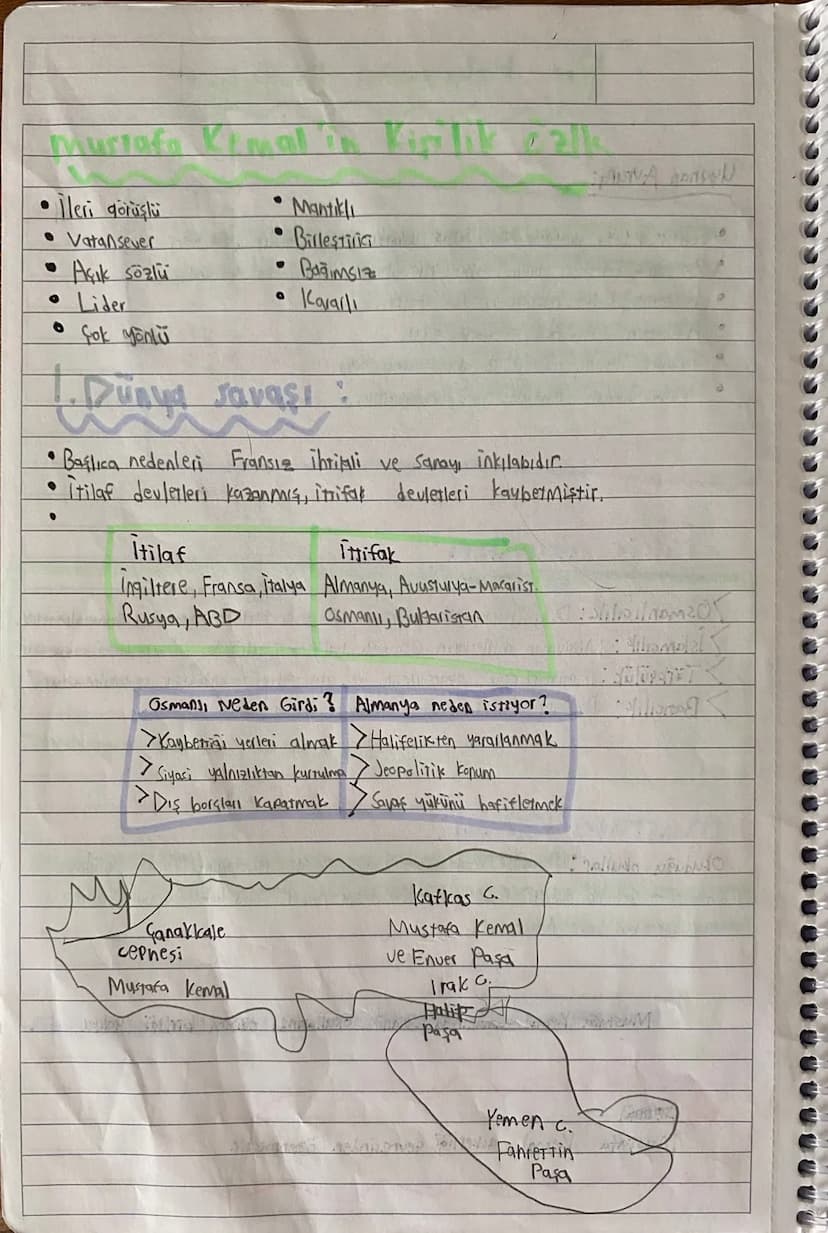 Mustafa Kemal'in Kişilik özlk
• İleri görüşlü
• Vatansever
• Açık sözlü
• Lider
• Çok yönlü
• Mantıklı
• Birleştirici
• Bağımsız
• Kararlı
1. Dünya savaşı :
• Başlıca nedenleri Fransız ihtilali ve sanayi inkılabıdır.
• İtilaf devletleri kazanmış, ittifak devletleri kaybetmiştir.
•
İtilaf
İngiltere, Fransa, İtalya
Rusya, ABD
İttifak
Almanya, Avusturya-Macarist.
Osmanlı, Bulgaristan
Osmanlı Neden Girdi?
> Kaybettiği yerleri almak
> Siyasi yalnızlıktan kurtulma
> Dış borçları kapatmak
Almanya neden istiyor?
> Halifelikten yararlanmak
> Jeopolitik konum
> Savaş yükünü hafifletmek
Çanakkale
cephesi
Mustafa Kemal
Kafkas C.
Mustafa Kemal
ve Enver Paşa
Irak C.
Halil
Paşa
Yemen C.
Fahrettin
Paşa